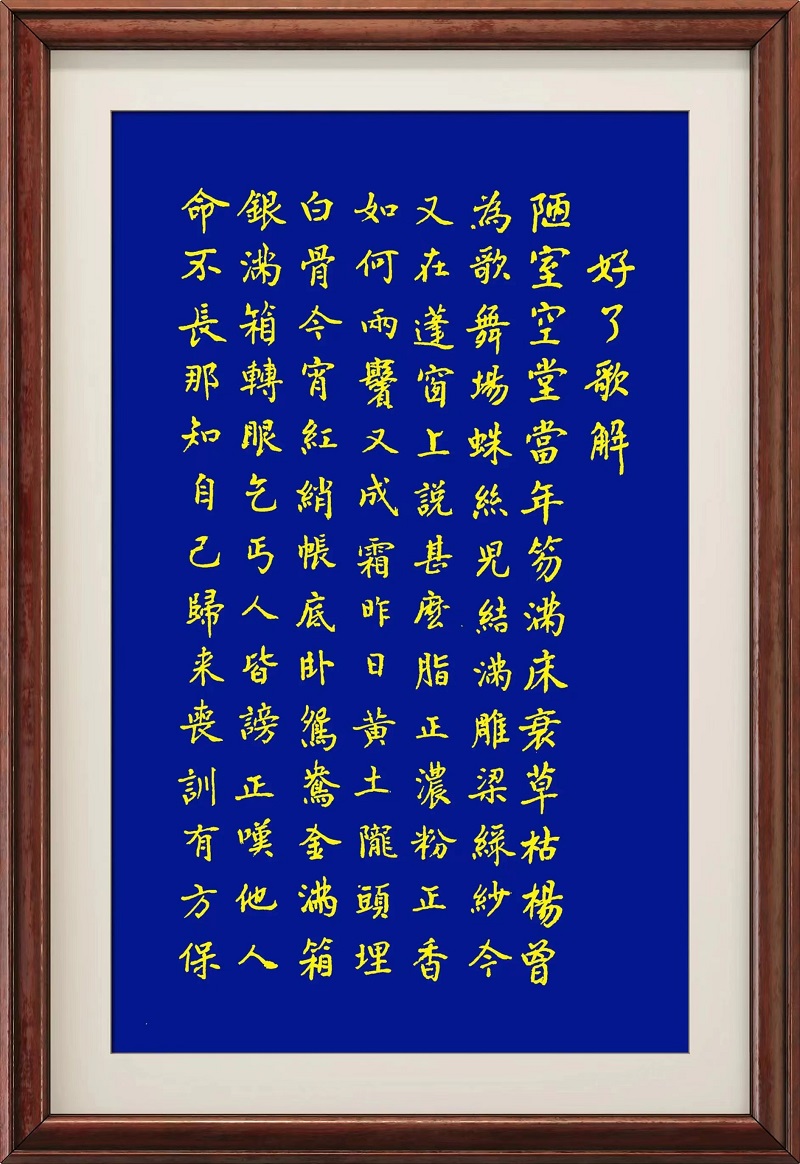 好了歌解
陋室空堂當年笏滿床衰草枯楊曾
為歌舞場蛛絲兒結滿雕梁綠紗今
又在蓬窗上説甚麼脂正濃粉正香
如何兩鬢又成霜昨日黃土隴頭埋
白骨今宵紅綃帳底卧鴛鴦金滿箱
銀滿箱轉眼乞丐人皆謗正嘆他人
命不長那知自己歸来喪訓有方保